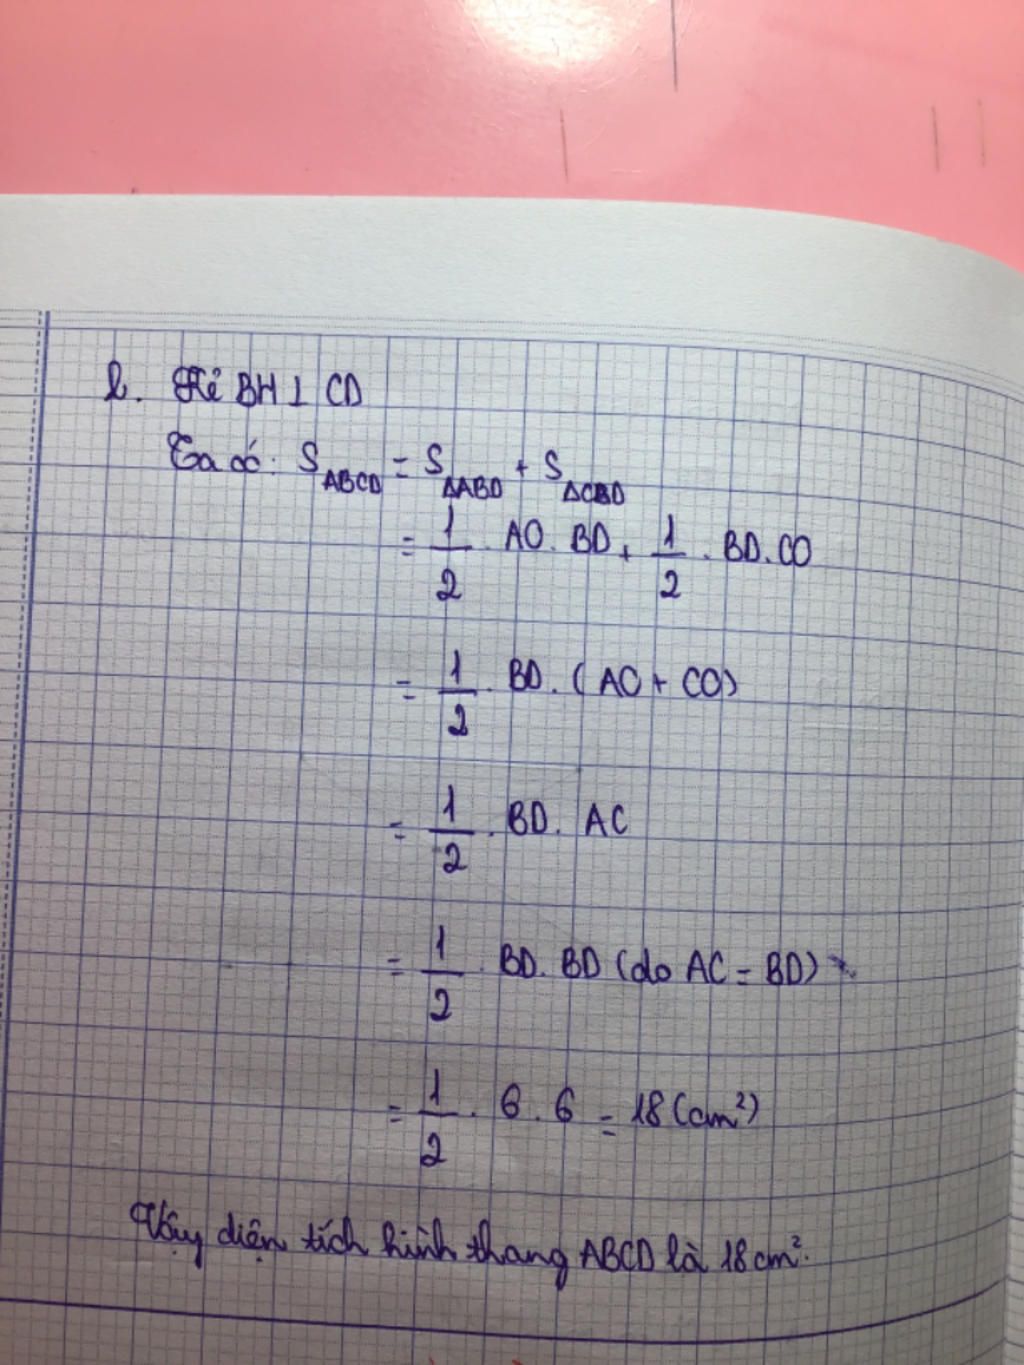 b. Kẻ BH ⊥ CD
Ta có: S_ABCD = S_ΔABD + S_ΔCBD
= 1/2 . AO. BD + 1/2 . BD. CO
= 1/2 . BD. (AO + CO)
= 1/2 . BD. AC
= 1/2 . BD. BD (do AC = BD)
= 1/2 . 6 . 6 = 18 (cm²)
Vậy diện tích hình thang ABCD là 18 cm².